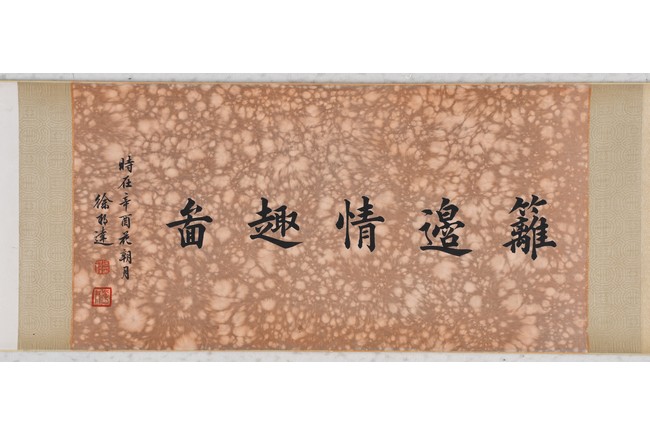 籬邉情趣啚
時在辛酉花朝月
徐邦達